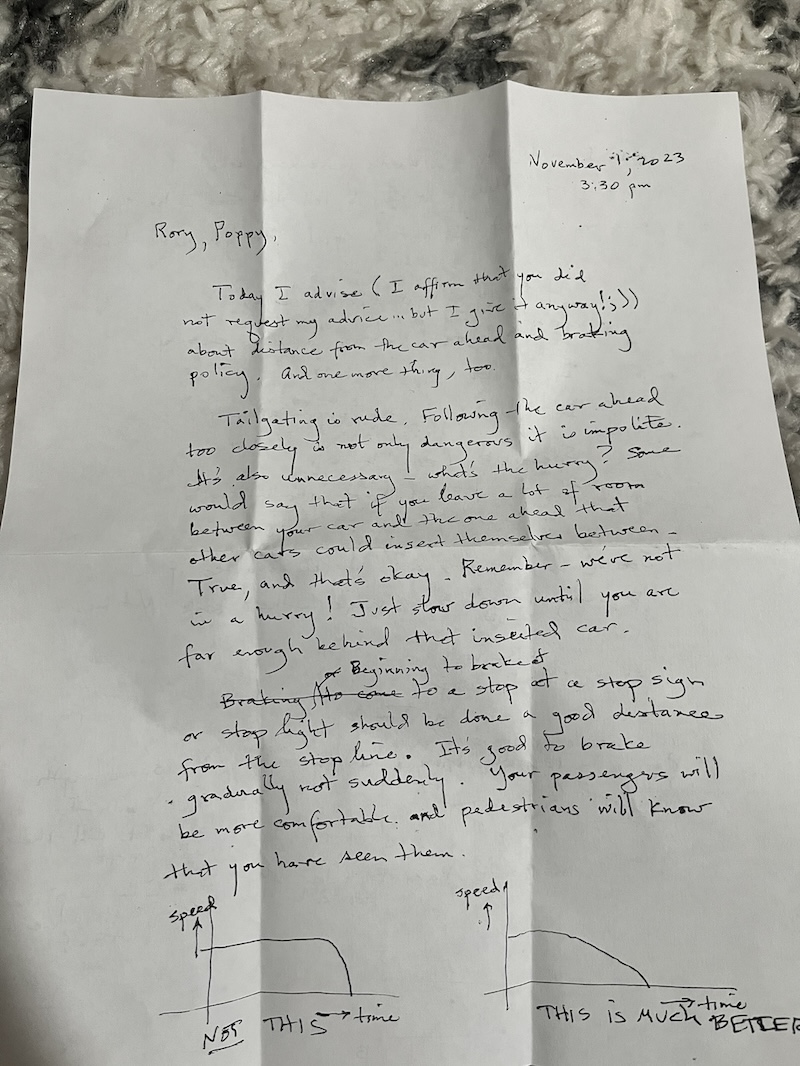 November 1, 2023
3:30 pm
Rory, Poppy,
Today I advise (I affirm that you did
not request my advice... but I give it anyway! ;))
about distance from the car ahead and braking
policy. And one more thing, too.
Tailgating is rude. Following the car ahead
too closely is not only dangerous it is impolite.
It's also unnecessary – what's the hurry? Some
would say that if you leave a lot of room
between your car and the one ahead that
other cars could insert themselves between –
True, and that's okay. Remember – we're not
in a hurry! Just slow down until you are
far enough behind that inserted car.
Beginning to brake
Braking to come to a stop at a stop sign
or stop light should be done a good distance
from the stop line. It's good to brake
gradually not suddenly. Your passengers will
be more comfortable and pedestrians will know
that you have seen them.
speed
time
NOT THIS
speed
time
THIS IS MUCH BETTER